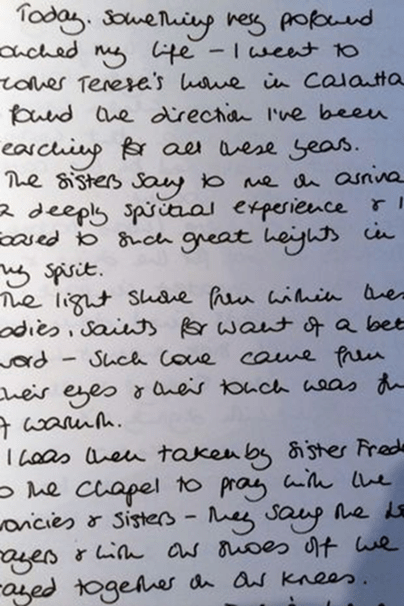 Today. Something very profound
ouched my life – I went to
other Teresa's home in Calcutta
found the direction I've been
earching for all these years.
The Sisters Sang to me on arriva
a deeply spiritual experience & I
oared to such great heights in
my spirit.
The light shone from within thes
adies, saints for want of a bet
word – Such Love came from
their eyes & their touch was
f warmth.
I was then taken by Sister Frede
o the Chapel to pray with the
ovicies & Sisters – they Sang the
rayers & with our shoes off we
rayed together on our knees.